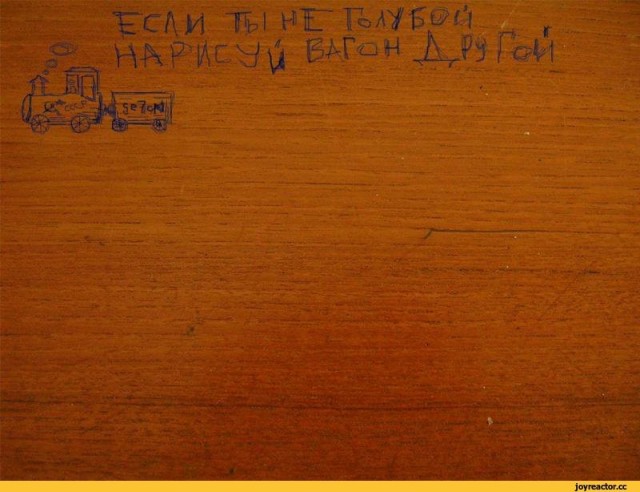 ЕСЛИ ТЫ НЕ ГОЛУБОЙ
НАРИСУЙ ВАГОН ДРУГОЙ
joyreactor.cc